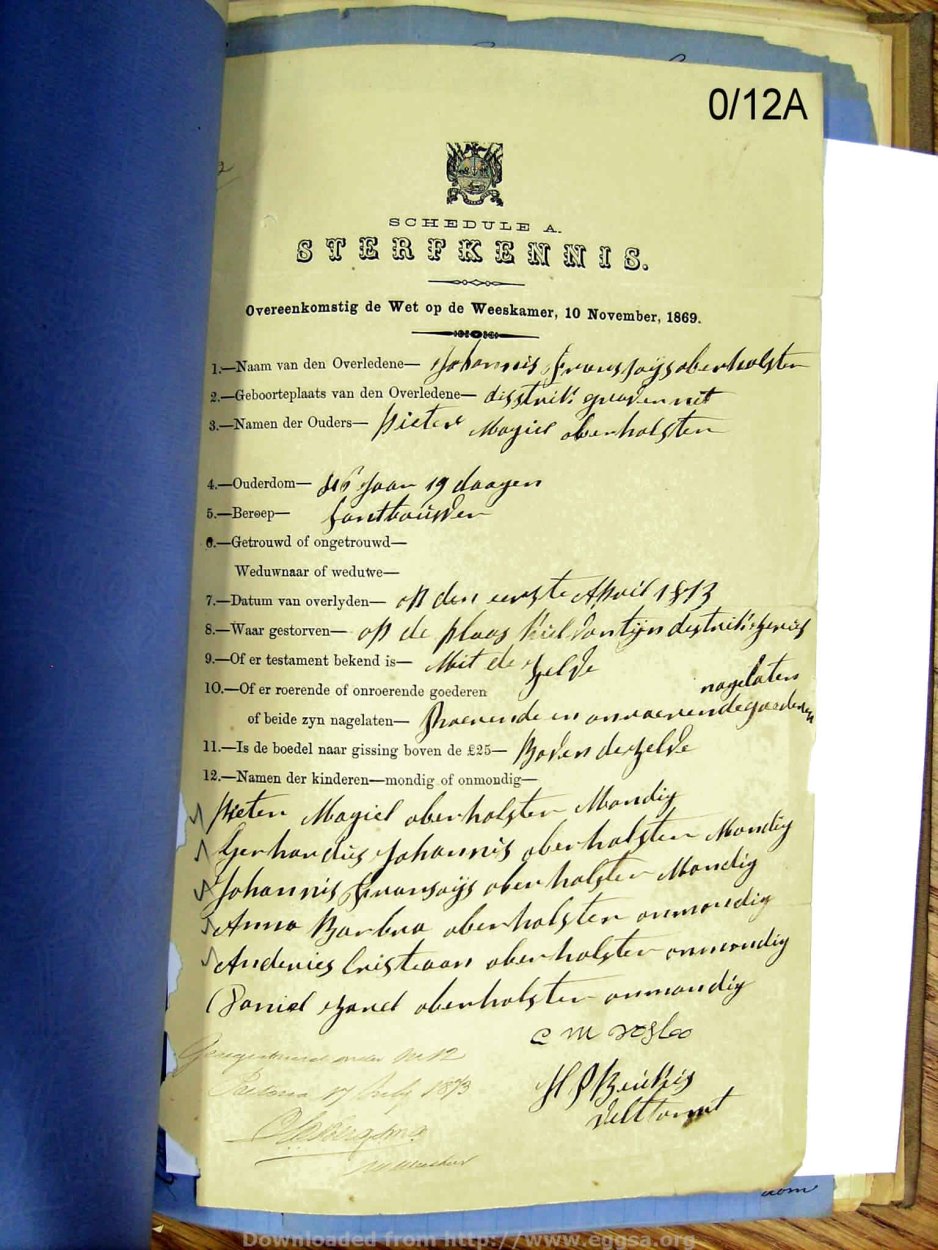 0/12A
SCHEDULE A.
STERFKENNIS.
Overeenkomstig de Wet op de Weeskamer, 10 November, 1869.
1.—Naam van den Overledene— Johannis fransoijs oberholster
2.—Geboorteplaats van den Overledene— distrik
3.—Namen der Ouders— Pieter Magiel oberholster
4.—Ouderdom— jaar 19 daagen
5.—Beroep—
6.—Getrouwd of ongetrouwd—
Weduwnaar of weduwe—
7.—Datum van overlyden— op den eerste April 1873
8.—Waar gestorven— op de plaas distrik
9.—Of er testament bekend is— Mit de zelve
10.—Of er roerende of onroerende goederen nagelaten
of beide zyn nagelaten— Roerende en onroerende goederen
11.—Is de boedel naar gissing boven de £25— Boven deszelve
12.—Namen der kinderen—mondig of onmondig—
Pieter Magiel oberholster Mondig
Gerhardus Johannis oberholster Mondig
Johannis fransoijs oberholster Mondig
Anna Barbra oberholster onmondig
Anderies Cristiaan oberholster onmondig
Daniel oberholster onmondig
C M vosloo
Geregistreerd onder No 12
Pretoria 17 July 1873
H P Beukis
Veltkornet
Downloaded from http://www.eggsa.org